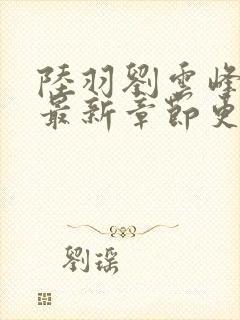 陸羽劉雲峰
最新章節更
劉瑤